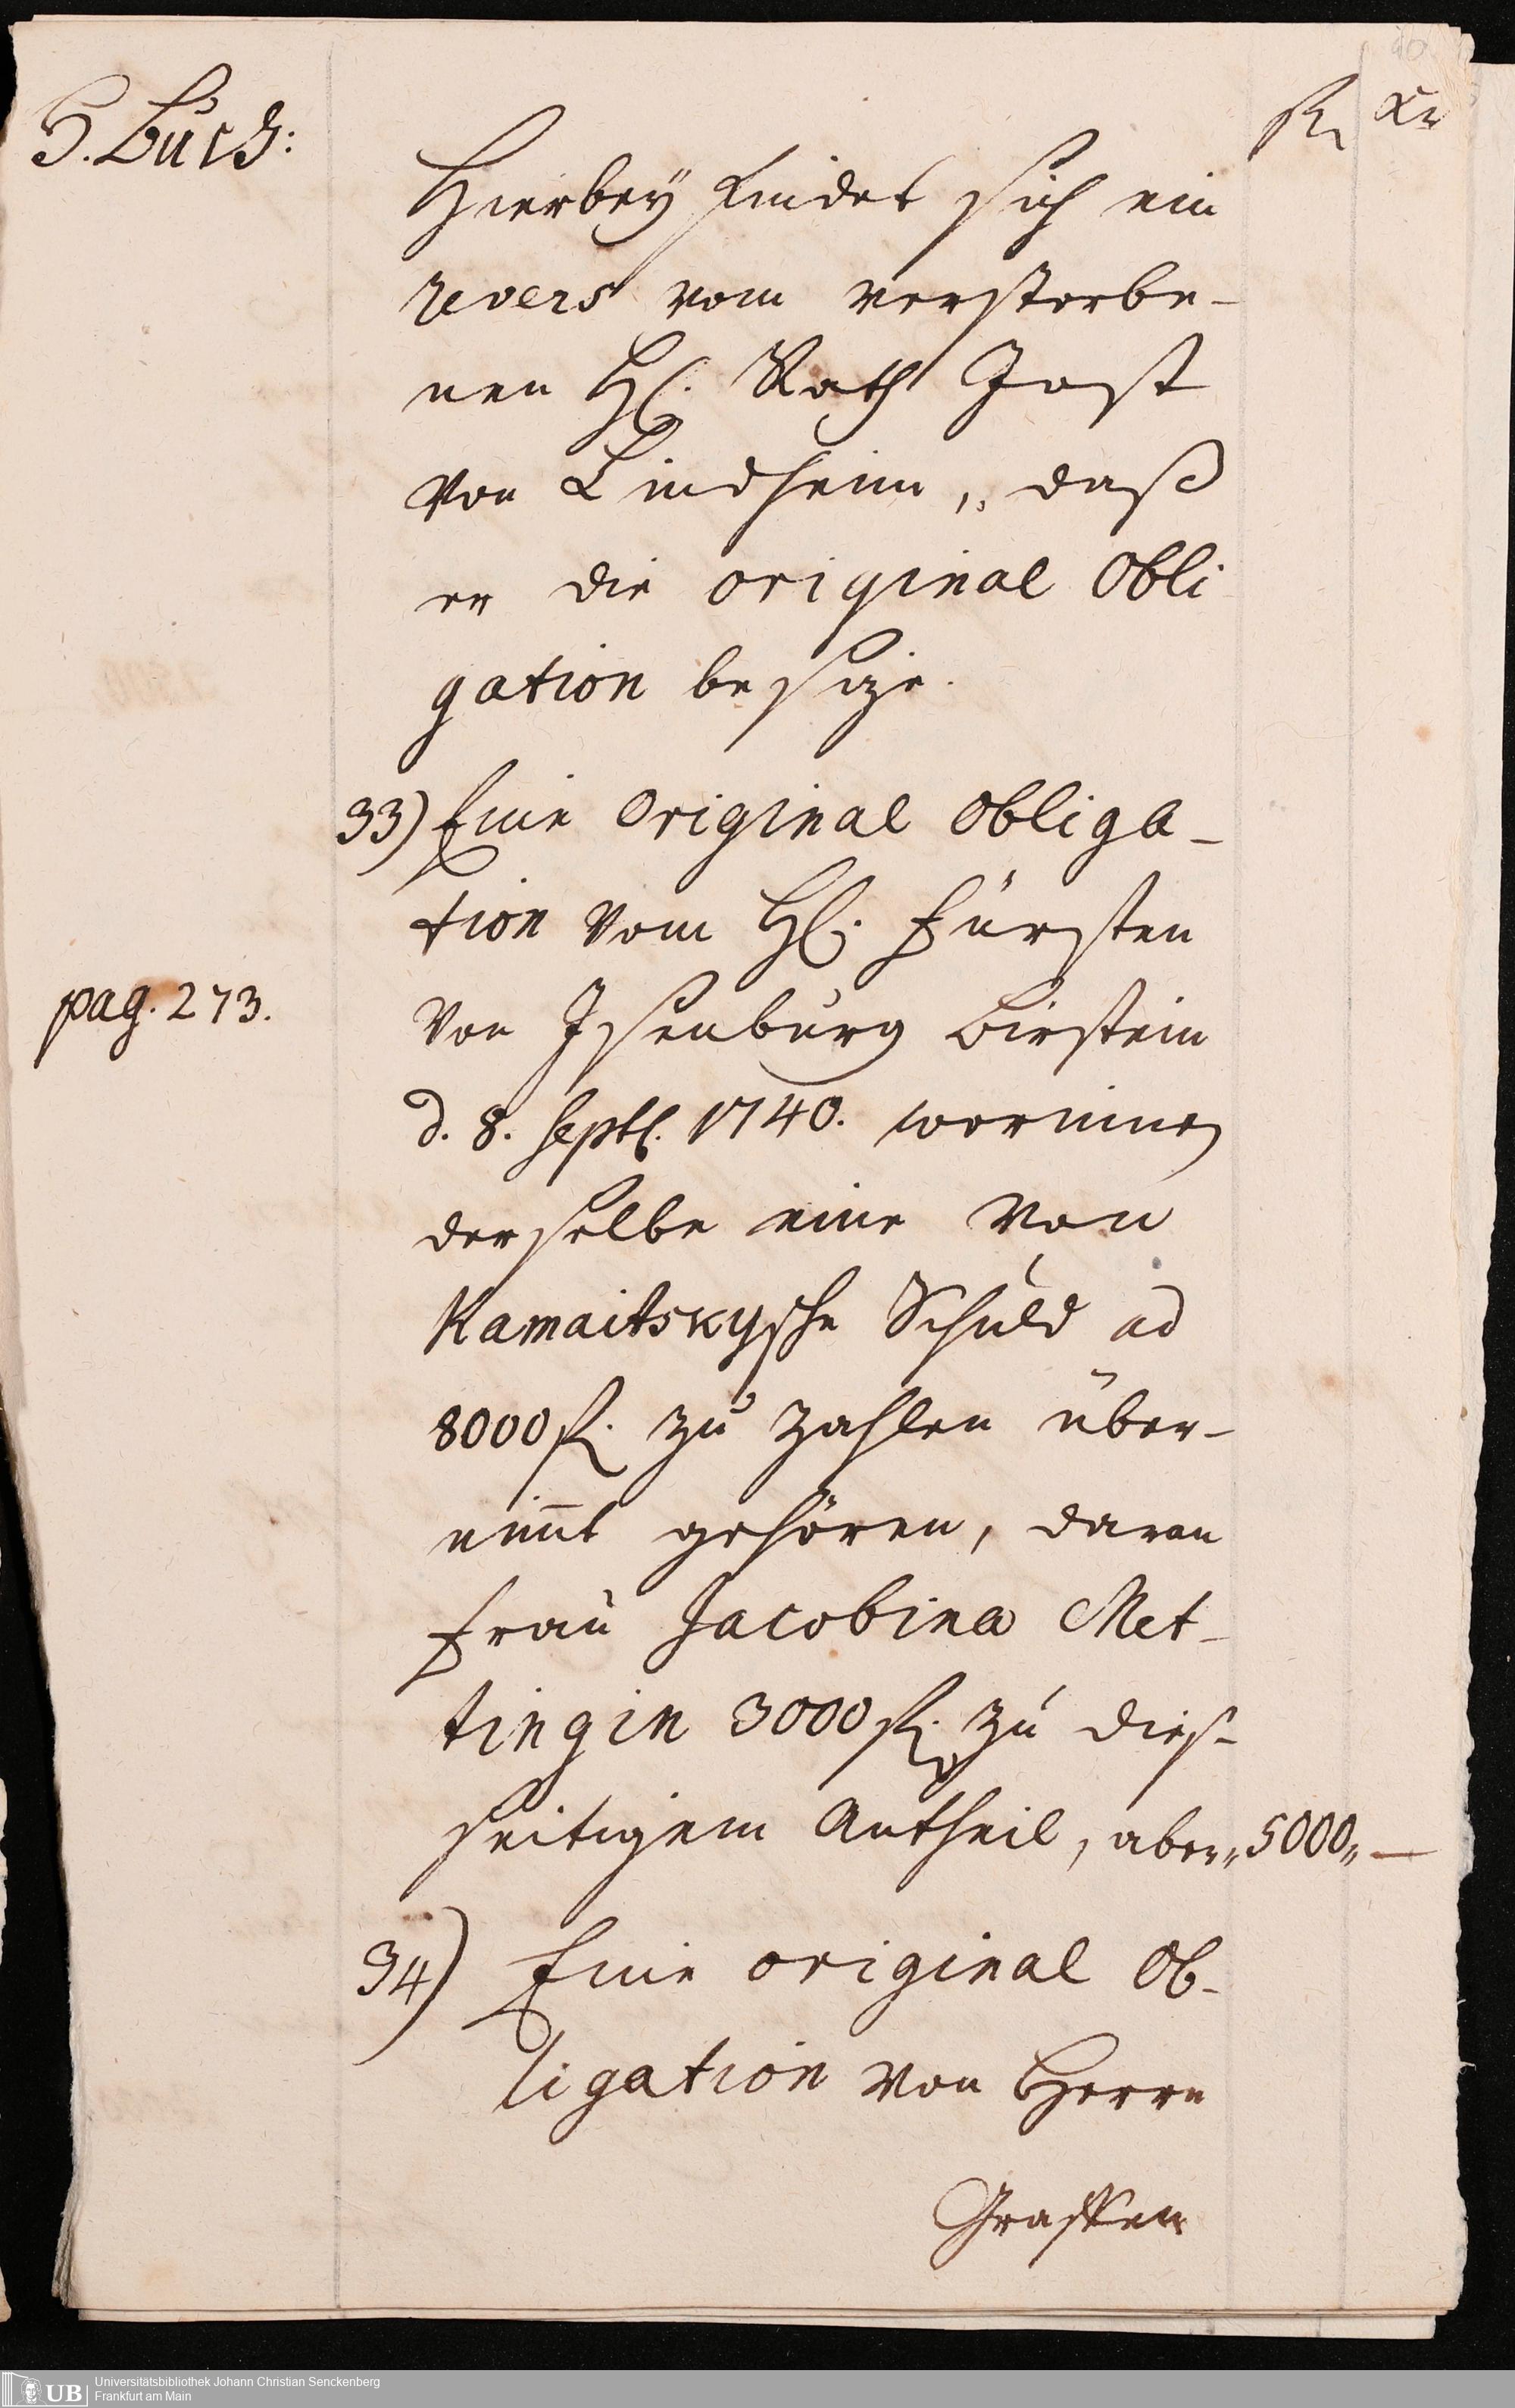 S. Buch:
fl. Kr
Hierbeÿ findet sich ein
revers vom verstorbe-
nen H. Rath Jost
von Lindheim, „ daß
er die original Obli
gation besize.
33) Eine Original Obliga-
tion vom H. Fürsten
pag. 273.
von Isenburg Birstein
d. 8. Sept. 1740. worinnen
derselbe eine von
Kamaitskysche Schuld ad
8000 fl. zu zahlen über-
nim̅t gehören, daran
Frau Jacobina Met-
tingin 3000 fl. zu dieß-
seitigem Antheil, aber „ 5000 „ —
34) Eine original Ob-
ligation von Herrn
Graffen
Universitätsbibliothek Johann Christian Senckenberg
UB
Frankfurt am Main